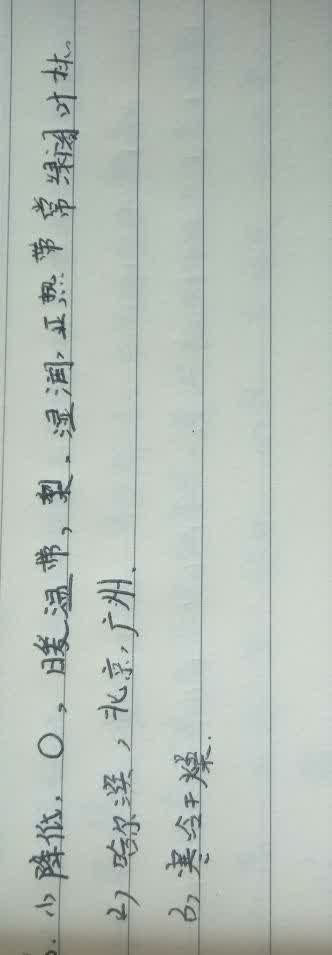 1) 降低, 0, 暖温带, 量, 湿润, 亚热带常绿阔叶林.
2) 哈尔滨, 北京, 广州.
3) 寒冷干燥.